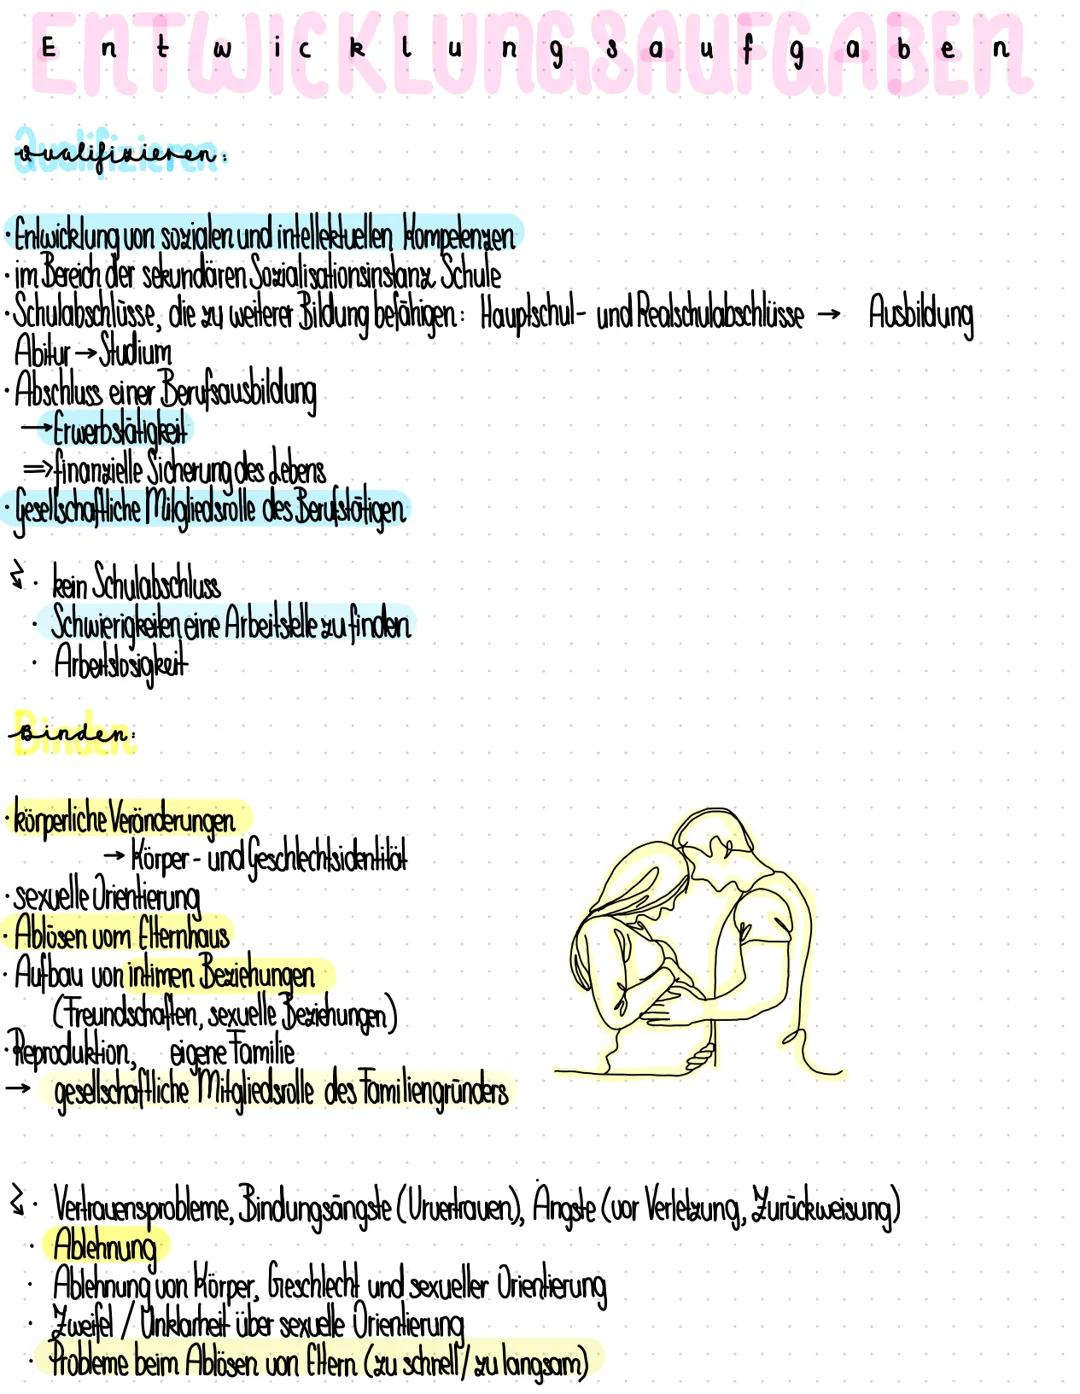 Entwicklungsaufgaben
Qualifizieren:
· Entwicklung von sozialen und intellektuellen Kompetenzen
· im Bereich der sekundären Sozialisationsinstanz Schule
· Schulabschlüsse, die zu weiterer Bildung befähigen: Hauptschul- und Realschulabschlüsse → Ausbildung
Abitur → Studium
· Abschluss einer Berufsausbildung
→ Erwerbstätigkeit
=> finanzielle Sicherung des Lebens
· Gesellschaftliche Mitgliedsrolle des Berufstätigen
↯ · kein Schulabschluss
· Schwierigkeiten eine Arbeitstelle zu finden
· Arbeitslosigkeit
Binden:
· körperliche Veränderungen
→ Körper- und Geschlechtsidentität
· sexuelle Orientierung
· Ablösen vom Elternhaus
· Aufbau von intimen Beziehungen
(Freundschaften, sexuelle Beziehungen)
· Reproduktion, eigene Familie
→ gesellschaftliche Mitgliedsrolle des Familiengründers
↯ · Vertrauensprobleme, Bindungsängste (Urvertrauen), Ängste (vor Verletzung, Zurückweisung)
· Ablehnung
· Ablehnung von Körper, Geschlecht und sexueller Orientierung
· Zweifel / Unklarheit über sexuelle Orientierung
· Probleme beim Ablösen von Eltern (zu schnell / zu langsam)